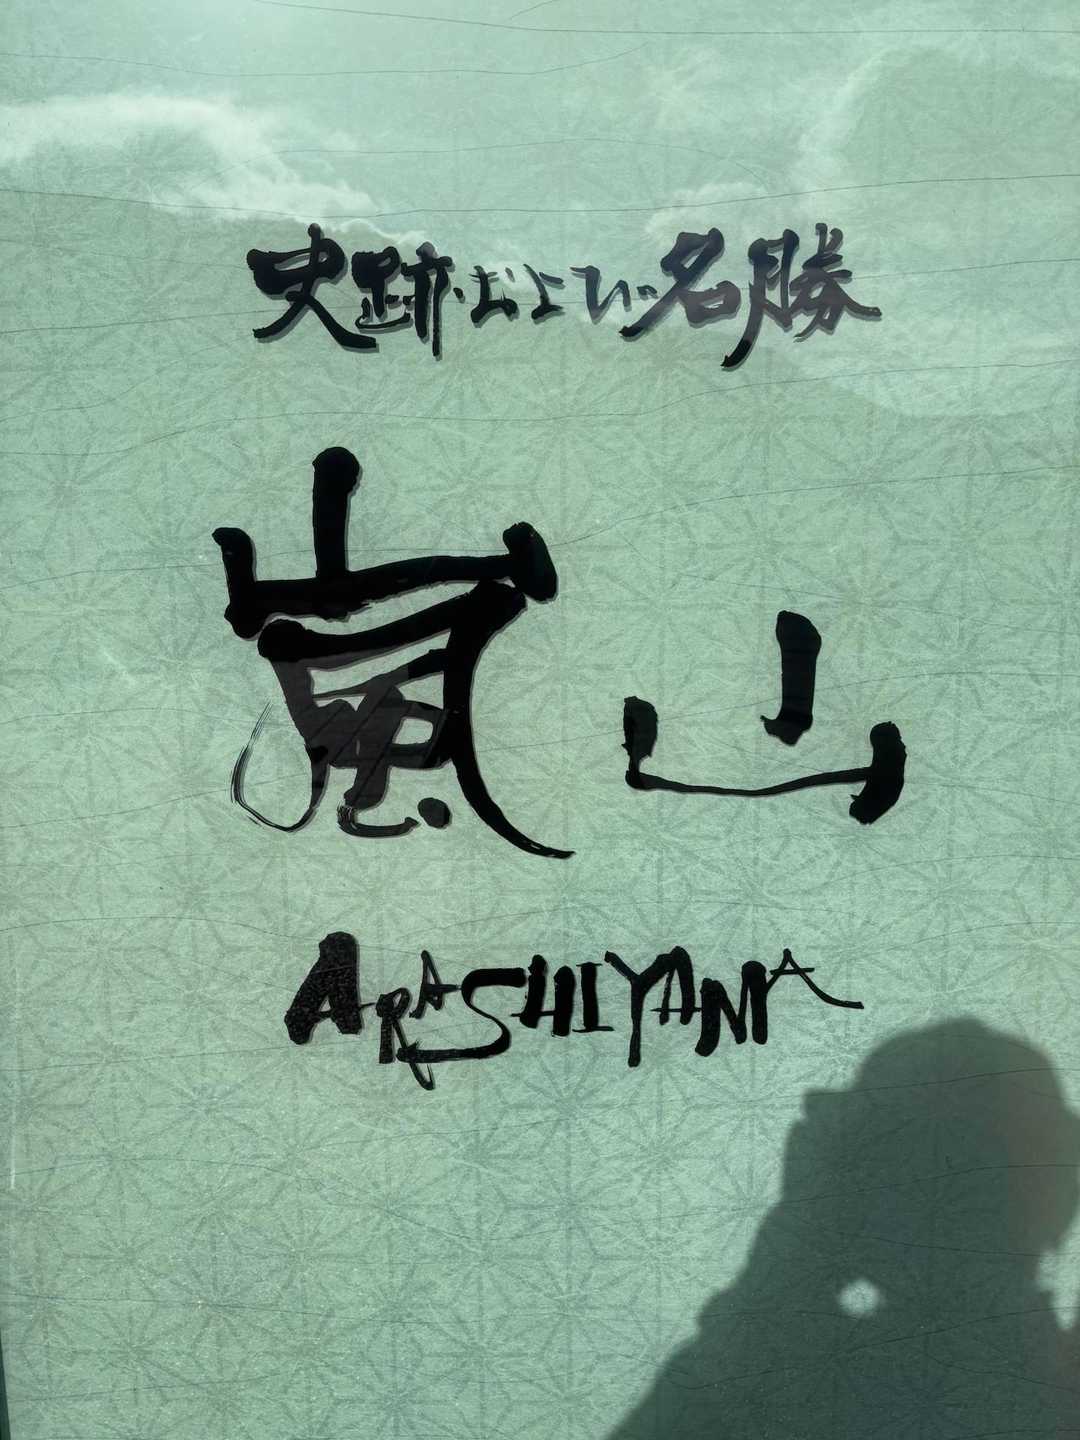 史跡およひ名勝
嵐山
ARASHIYAMA